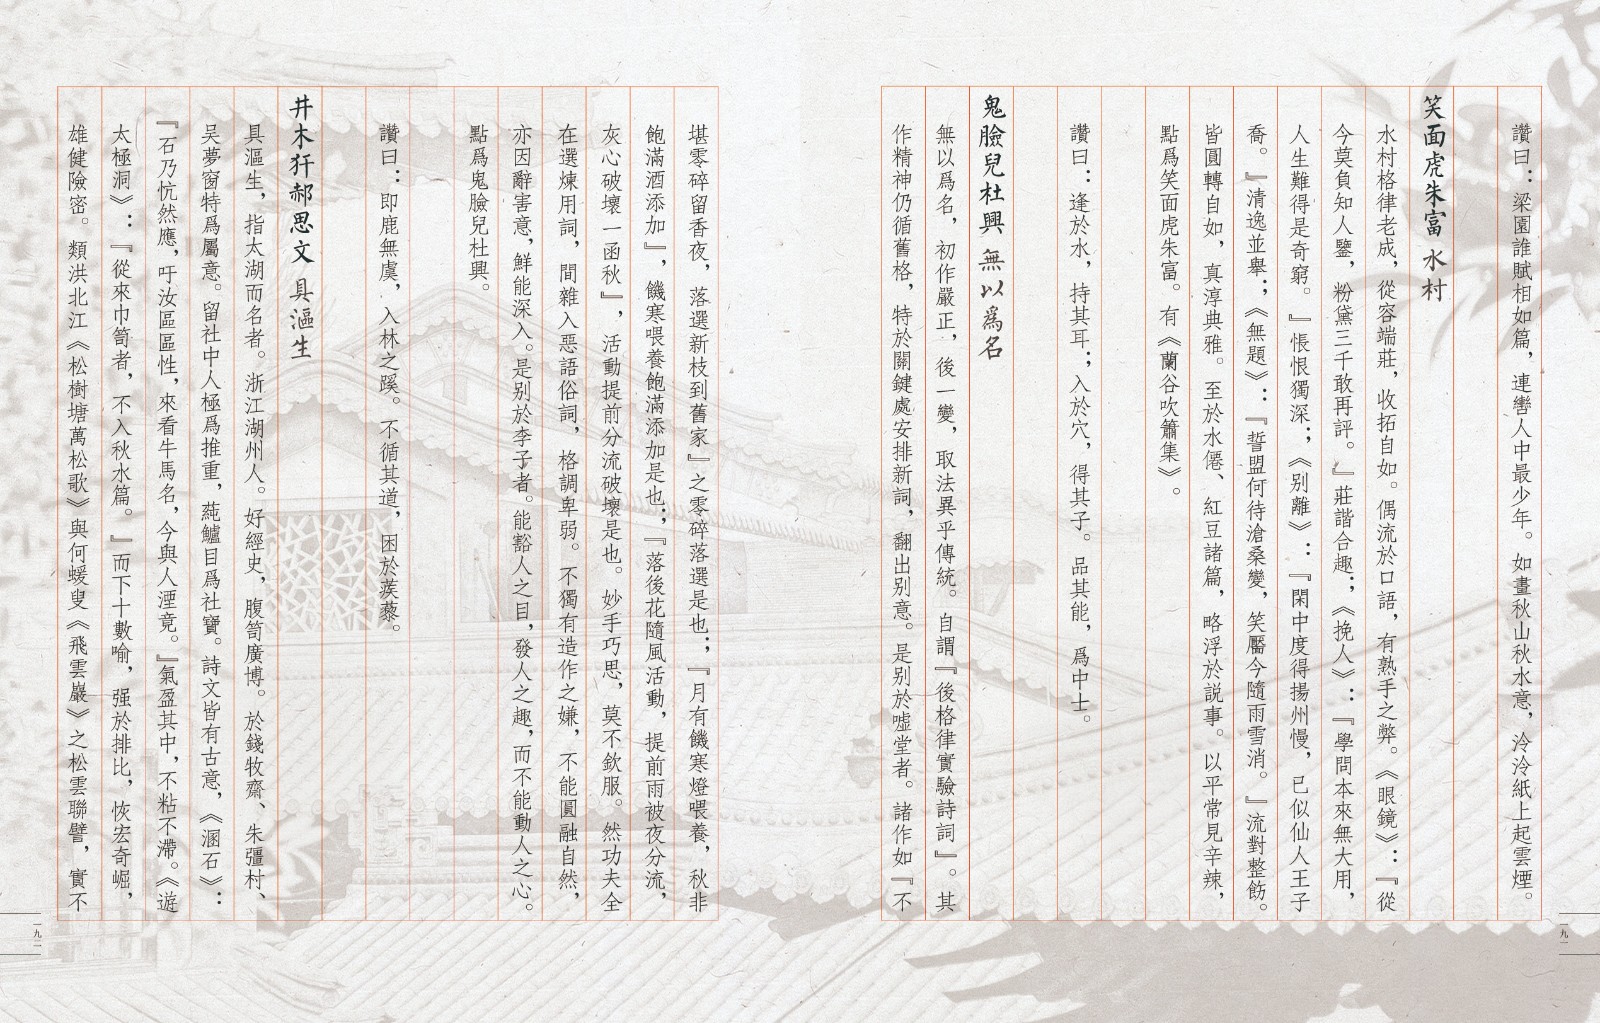 讚曰：梁園誰賦相如篇，連轡人中最少年。如畫秋山秋水意，泠泠紙上起雲煙。
笑面虎朱富 水村
水村格律老成，從容端莊，收拓自如。偶流於口語，有熟手之弊。《眼鏡》：『從
今莫負知人鑒，粉黛三千敢再評。』莊諧合趣；《挽人》：『學問本來無大用，
人生難得是奇窮。』悵恨獨深；《別離》：『閑中度得揚州慢，已似仙人王子
喬。』清逸並舉；《無題》：『誓盟何待滄桑變，笑靨今隨雨雪消。』流對整飭。
皆圓轉自如，真淳典雅。至於水僊、紅豆諸篇，略浮於説事。以平常見辛辣，
點爲笑面虎朱富。有《蘭谷吹簫集》。
讚曰：逢於水，持其耳；入於穴，得其子。品其能，爲中士。
鬼臉兒杜興 無以爲名
無以爲名，初作嚴正，後一變，取法異乎傳統。自謂『後格律實驗詩詞』。其
作精神仍循舊格，特於關鍵處安排新詞，翻出別意。是別於噓堂者。諸作如『不
堪零碎留香夜，落選新枝到舊家』之零碎落選是也；『月有饑寒燈喂養，秋非
飽滿酒添加』，饑寒喂養飽滿添加是也；『落後花隨風活動，提前雨被夜分流，
灰心破壞一函秋』，活動提前分流破壞是也。妙手巧思，莫不欽服。然功夫全
在選煉用詞，間雜入惡語俗詞，格調卑弱。不獨有造作之嫌，不能圓融自然，
亦因辭害意，鮮能深入。是別於李子者。能豁人之目，發人之趣，而不能動人之心。
點爲鬼臉兒杜興。
讚曰：即鹿無虞，入林之蹊。不循其道，困於蒺藜。
井木犴郝思文 具漚生
具漚生，指太湖而名者。浙江湖州人。好經史，腹笥廣博。於錢牧齋、朱彊村、
吳夢窗特爲屬意。留社中人極爲推重，蒓鱸目爲社寶。詩文皆有古意，《溷石》：
『石乃忼然應，吁汝區區性，來看牛馬名，今與人湮竟。』氣盈其中，不粘不滯。《遊
太極洞》：『從來巾笥者，不入秋水篇。』而下十數喻，强於排比，恢宏奇崛，
雄健險密。類洪北江《松樹塘萬松歌》與何蝯叟《飛雲巖》之松雲聯譬，實不
一九一
一九二